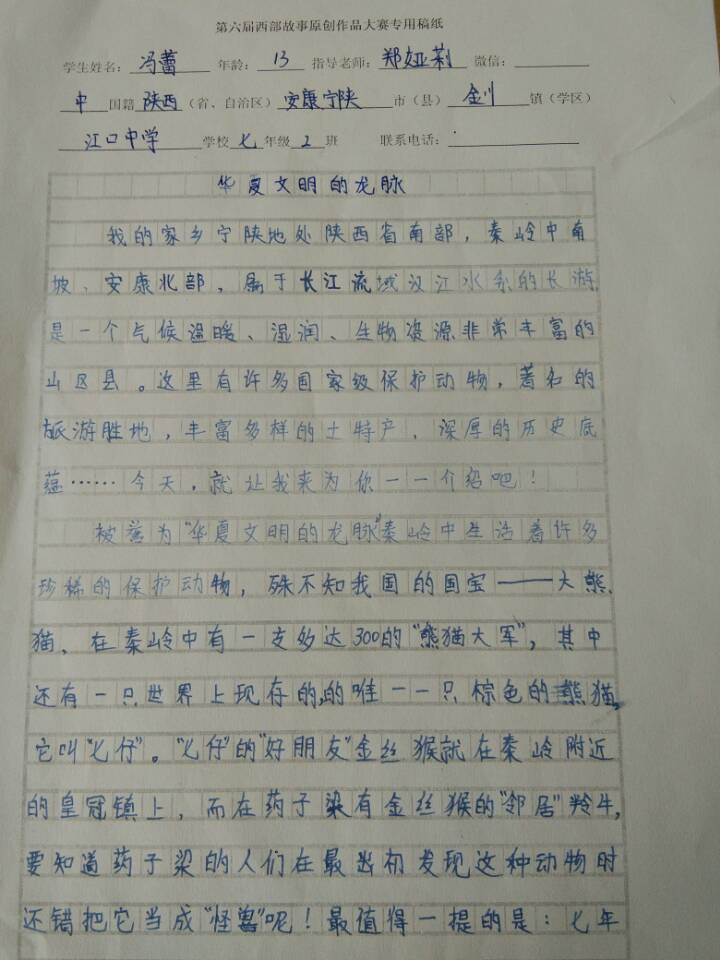 第六届西部故事原创作品大赛专用稿纸
学生姓名：冯蕾 年龄：13 指导老师：郑娅莉 微信：
中国籍 陕西（省、自治区）安康宁陕市（县）金川镇（学区）
江口中学学校 七年级 2班 联系电话：
华夏文明的龙脉
我的家乡宁陕地处陕西省南部，秦岭中南
坡、安康北部，属于长江流域汉江水系的长游
是一个气候温暖、湿润、生物资源非常丰富的
山区县。这里有许多国家级保护动物，著名的
旅游胜地，丰富多样的土特产，深厚的历史底
蕴……今天，就让我来为你一一介绍吧！
被誉为“华夏文明的龙脉”秦岭中生活着许多
珍稀的保护动物，殊不知我国的国宝——大熊
猫、在秦岭中有一支多达300的“熊猫大军”，其中
还有一只世界上现存的，的唯一一只棕色的熊猫，
它叫“七仔”。“七仔”的“好朋友”金丝猴就在秦岭附近
的皇冠镇上，而在药子梁有金丝猴的“邻居”羚牛，
要知道药子梁的人们在最出初发现这种动物时
还错把它当成“怪兽”呢！最值得一提的是：七年